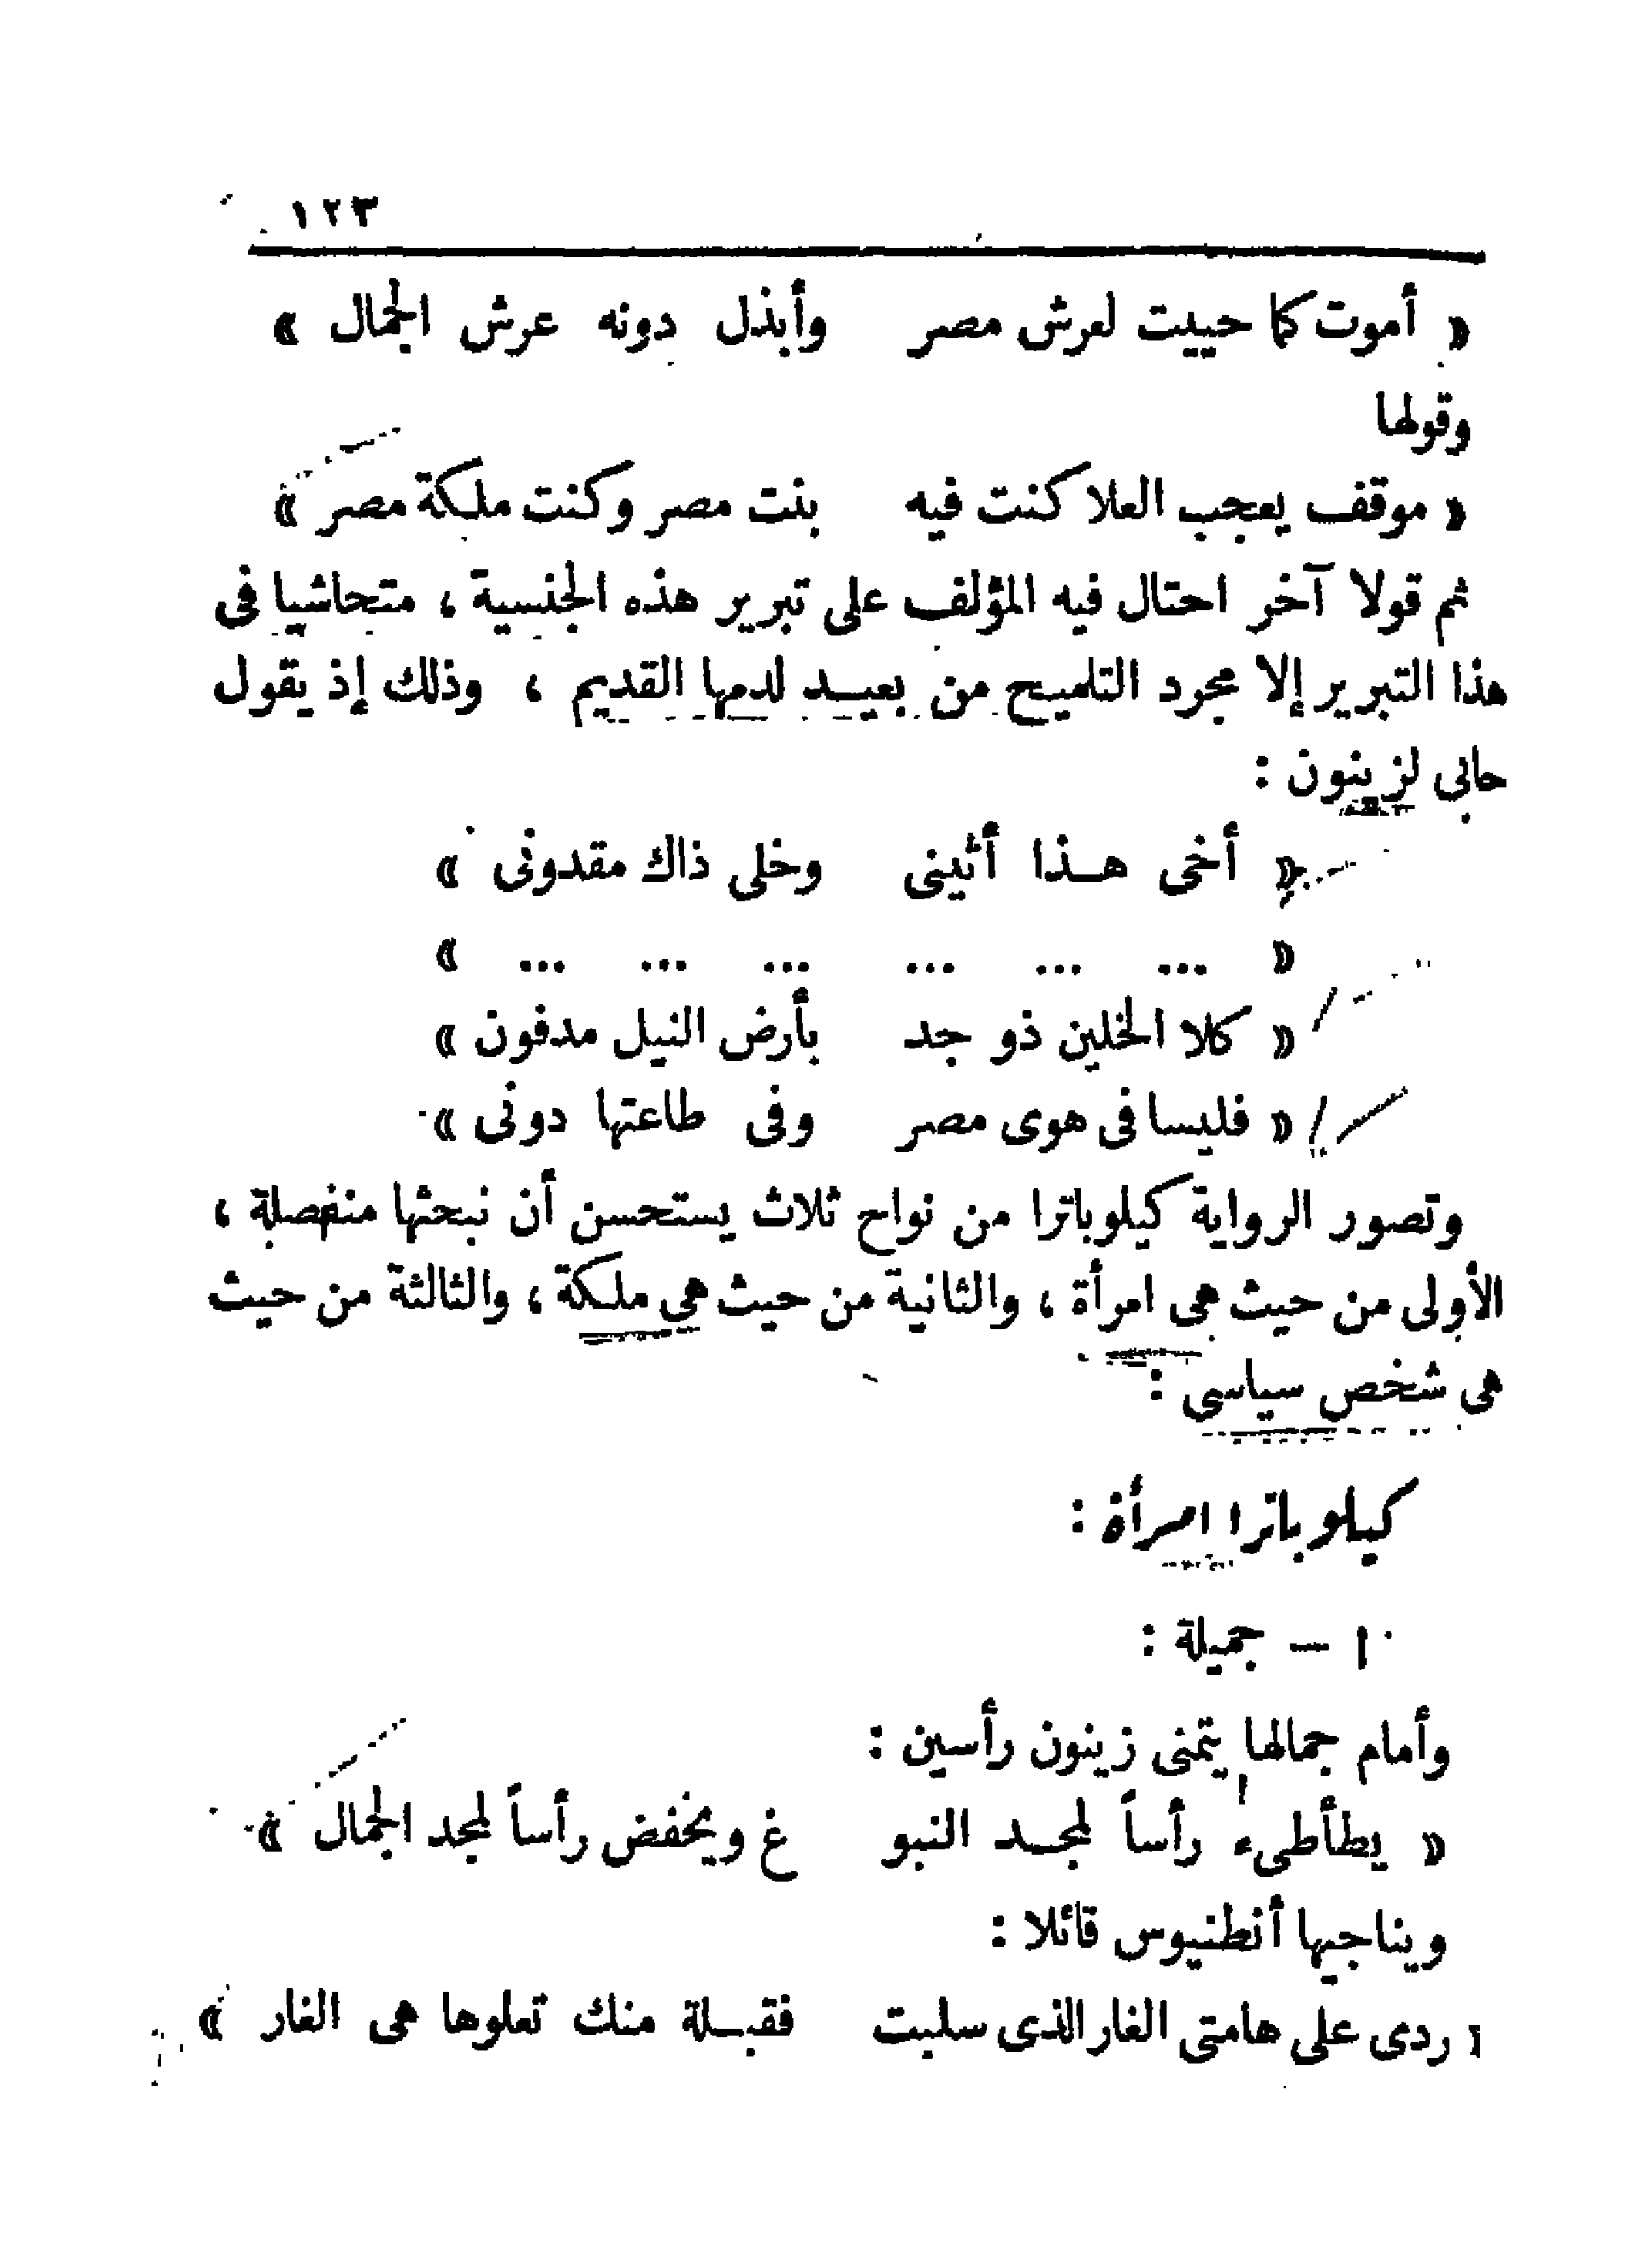 ١٢٣
« أموت كما حييت لعرش مصر وأبذل دونه عرش الجمال »
وقولها
« موقف يعجب العلا كنت فيه بنت مصر وكنت ملكة مصر »
ثم قولا آخر احتال فيه المؤلف على تبرير هذه الجنسية ، متحاشيا فى
هذا التبرير إلا مجرد التلميح من بعيد لدمها القديم ، وذلك إذ يقول
حابى لزينون :
« أخى هذا أثينى وخلى ذاك مقدونى »
« ... ... ... ... ... ... »
« كلا الخلين ذو جد بأرض النيل مدفون »
« فليسا فى هوى مصر وفى طاعتها دونى »
وتصور الرواية كيلوباترا من نواح ثلاث يستحسن أن نبحثها منفصلة ،
الأولى من حيث هى امرأة ، والثانية من حيث هى ملكة ، والثالثة من حيث
هى شخص سياسى :
كيلوباترا امرأة :
١ — جميلة :
وأمام جمالها يتمنى زينون رأسين :
« يطأطىء رأساً لمجد النبو غ ويخفض رأساً لمجد الجمال »
ويناجيها أنطنيوس قائلا :
« ردى على هامتى الغار الذى سلبت فقبلة منك تعلوها هى الغار »